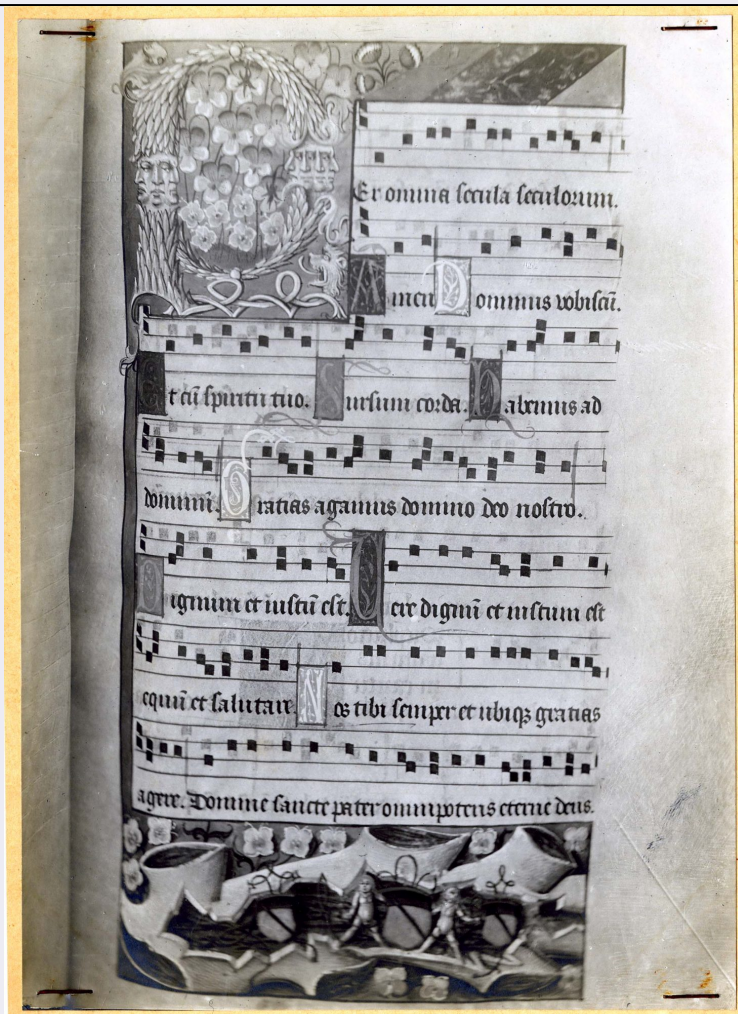 PEr omnia secula seculorum.
Amen Dominus vobiscū.
Et cū spiritu tuo. Sursum corda. Habemus ad
dominū. Gratias agamus domino deo nostro.
Dignum et iustū est. Uere dignū et iustum est
equū et salutare. Nos tibi semper et ubiqꝫ gratias
agere. Domine sancte pater omnipotens eterne deus.